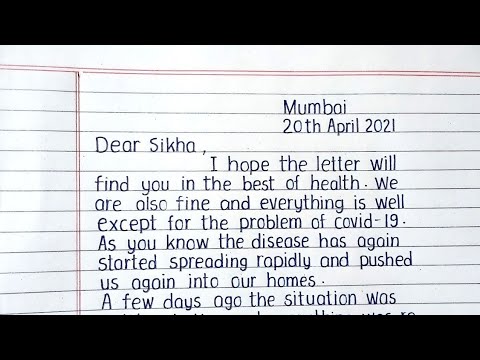 Mumbai
20th April 2021
Dear Sikha,
I hope the letter will
find you in the best of health. We
are also fine and everything is well
except for the problem of covid-19.
As you know the disease has again
started spreading rapidly and pushed
us again into our homes.
A few days ago the situation was